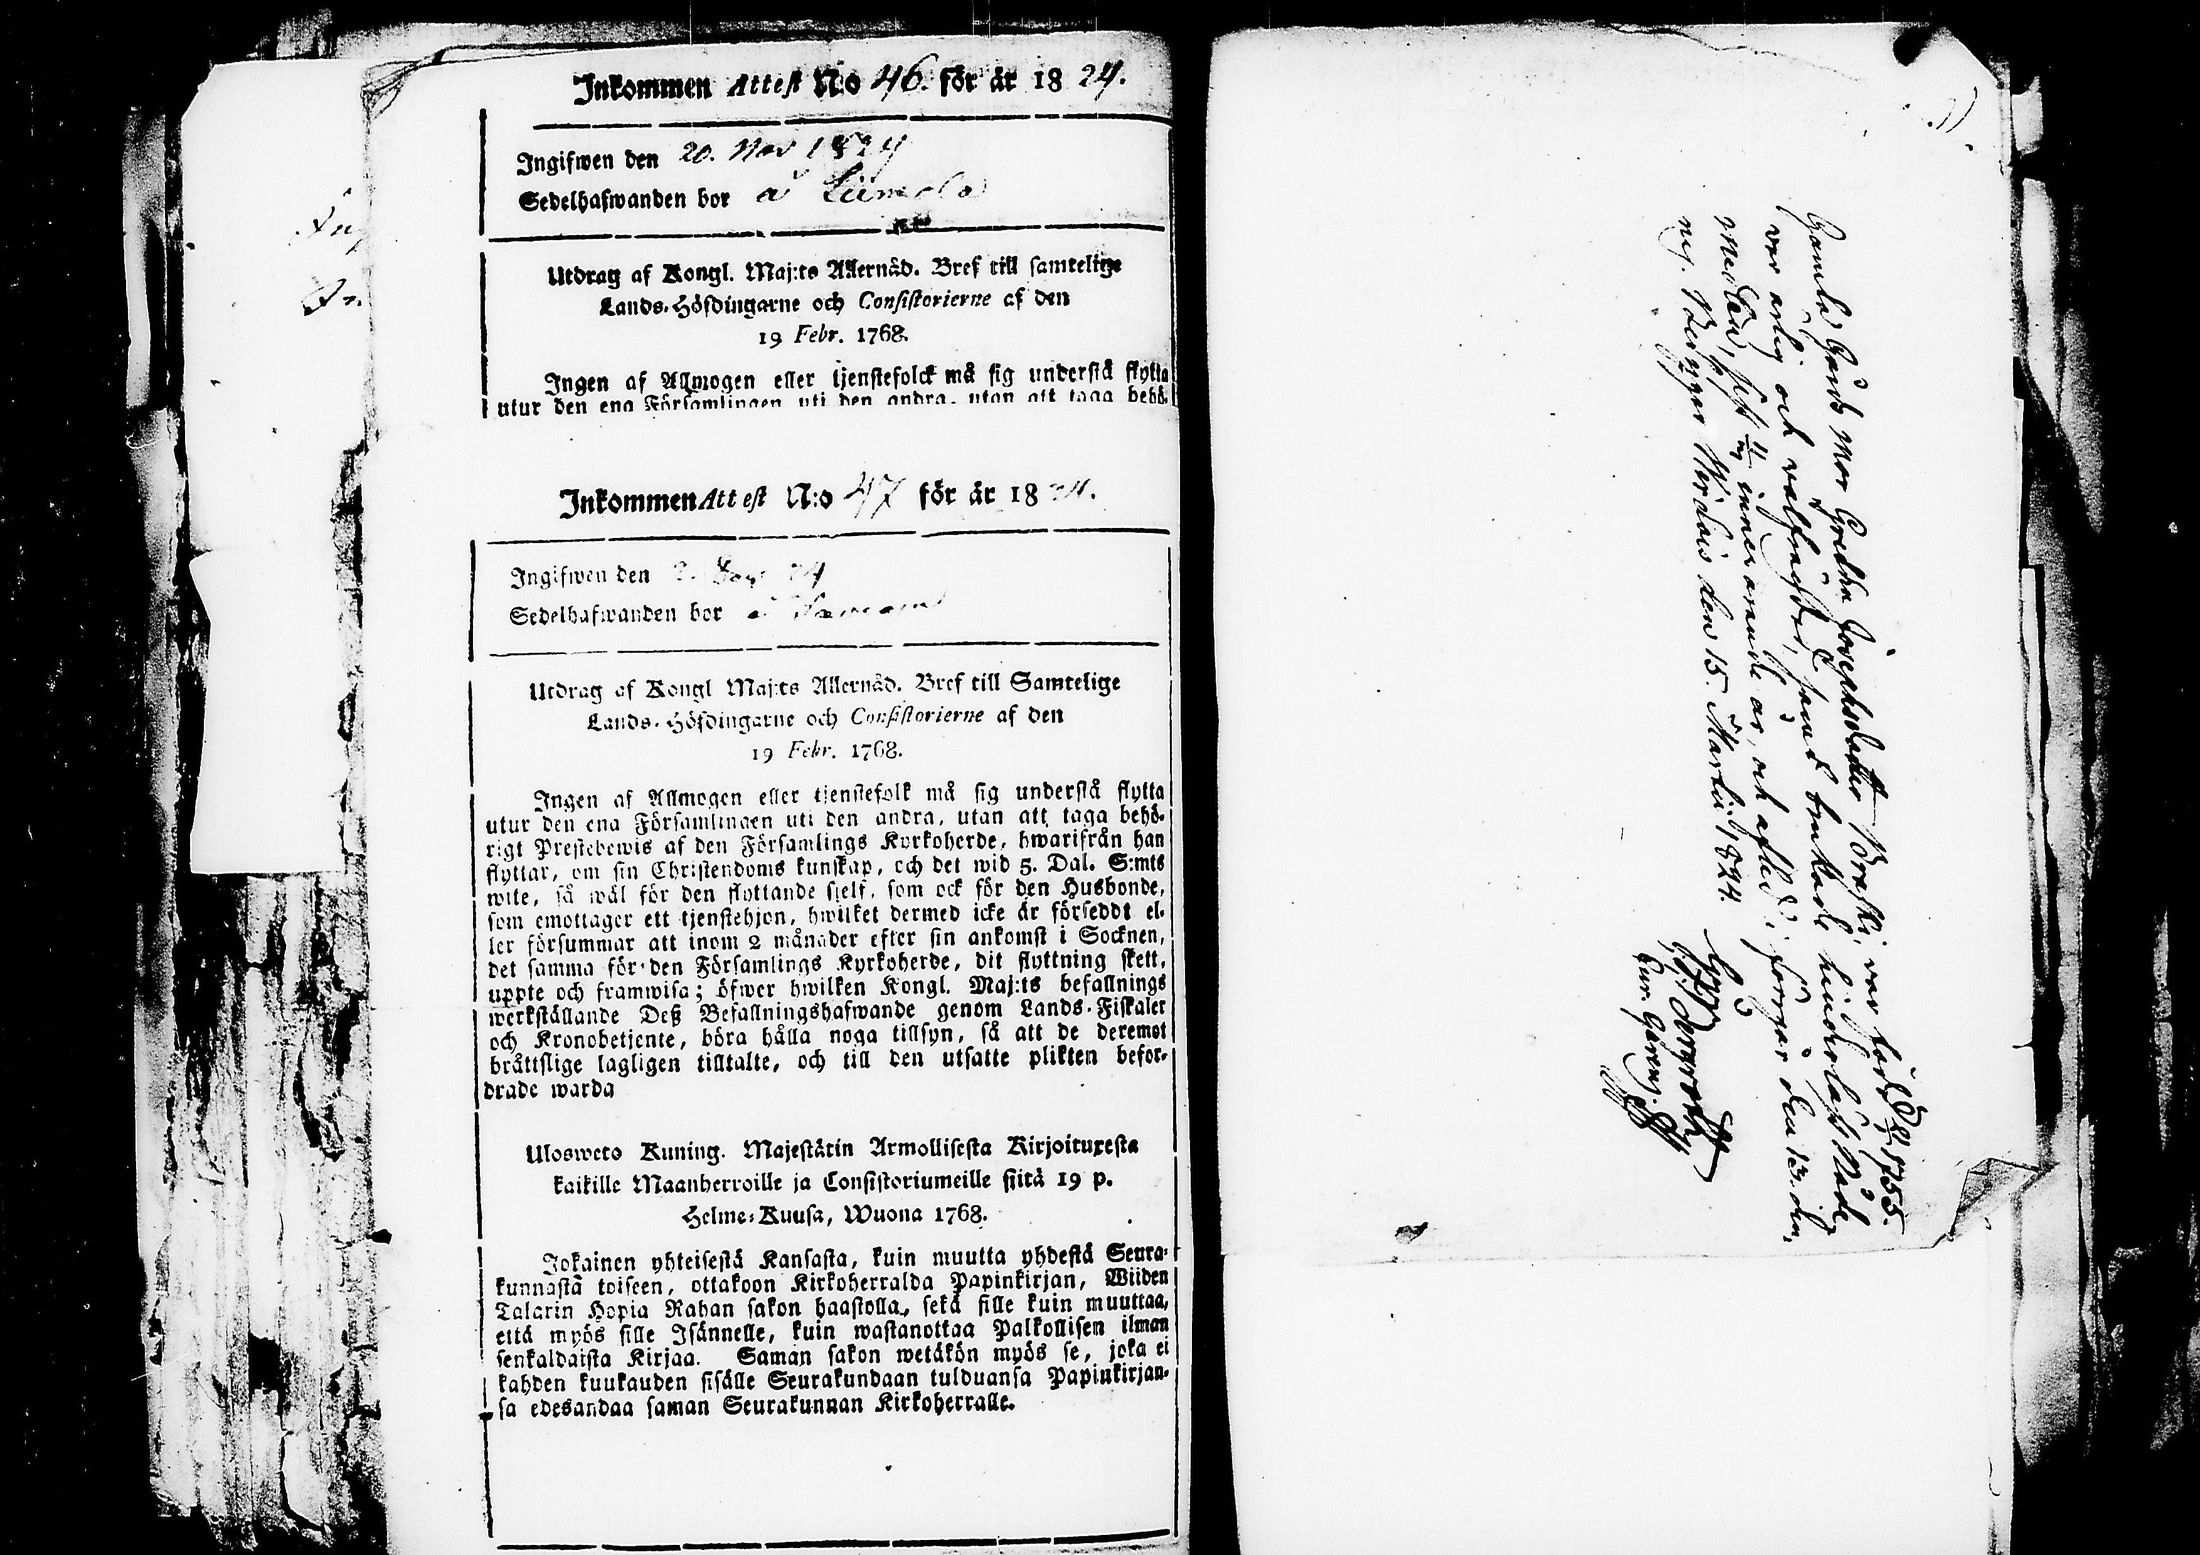 Inkommen Attest N:o 46. för år 1824.
Ingifwen den 20. Nov 1824
Sedelhafwanden bor å
Utdrag af Kongl. Maj:ts Allernåd. Bref till samtelige
Lands-Höfdingarne och Consistorierne af den
19 Febr. 1768.
Ingen af Allmogen eller tjenstefolck må sig understå flytta
utur den ena Församlingen uti den andra, utan att taga behö-
Inkommen Attest N:o 47 för år 1824.
Ingifwen den 24
Sedelhafwanden bor
Utdrag af Kongl Maj:ts Allernåd. Bref till Samtelige
Lands-Höfdingarne och Consistorierne af den
19 Febr. 1768.
Ingen af Allmogen eller tjenstefolk må sig understå flytta
utur den ena Församlingen uti den andra, utan att taga behö-
rigt Prestebewis af den Församlings Kyrkoherde, hwarifrån han
flyttar, om sin Christendoms kunskap, och det wid 5. Dal. S:mts
wite, så wäl för den flyttande sjelf, som ock för den Husbonde,
som emottager ett tjenstehjon, hwilket dermed icke är förseddt el-
ler försummar att inom 2 månader efter sin ankomst i Socknen,
det samma för den Församlings Kyrkoherde, dit flyttning skett,
uppte och framwisa; öfwer hwilken Kongl. Maj:ts befallnings
werkställande Deß Befallningshafwande genom Lands-Fiskaler
och Kronobetjente, böra hålla noga tillsyn, så att de deremot
bråttslige lagligen tilltalte, och till den utsatte plikten befor-
drade warda
Ulosweto Kuning. Majestätin Armollisesta Kirjoituxesta
kaikille Maanherroille ja Consistoriumeille siitä 19 p.
Helme-Kuusa, Wuona 1768.
Jokainen yhteisestä Kansasta, kuin muutta yhdestä Seura-
kunnastä toiseen, ottakoon Kirkoherralda Papinkirjan, Wiiden
Talarin Hopia Rahan sakon haastolla, sekä sille kuin muuttaa,
että myös sille Isännelle, kuin wastanottaa Palkollisen ilman
senkaldaista Kirjaa. Saman sakon wetäkön myös se, joka ei
kahden kuukauden sisälle Seurakundaan tulduansa Papinkirjan-
sa edesandaa saman Seurakunnan Kirkoherralle.
Gamla Gårds Mor Gretha Josephsdotter var född 1755.
var ärlig och välfrägdad, samt brukade
innevarande år, och afled i förrgår den 13. dens,
den 15. Martii 1824.